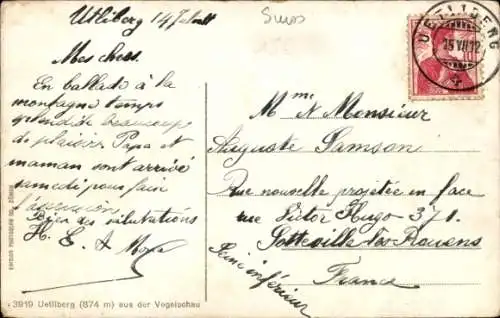 Uetliberg 14 Juillet
Suiss
Mes chers.
En ballade à la
montagne temps
splendide beaucoup
de plaisir Papa et
maman sont arrivé
samedi pour fair
l'ascension
Bien des salutations
H. E. &
UETLIBERG
15 VII 12
Mme & Monsieur
Auguste Samson
Rue nouvelle projetée en face
rue Victor Hugo 371.
Sotteville-les-Rouens
Seine inférieur
France
3919 Uetliberg (874 m) aus der Vogelschau